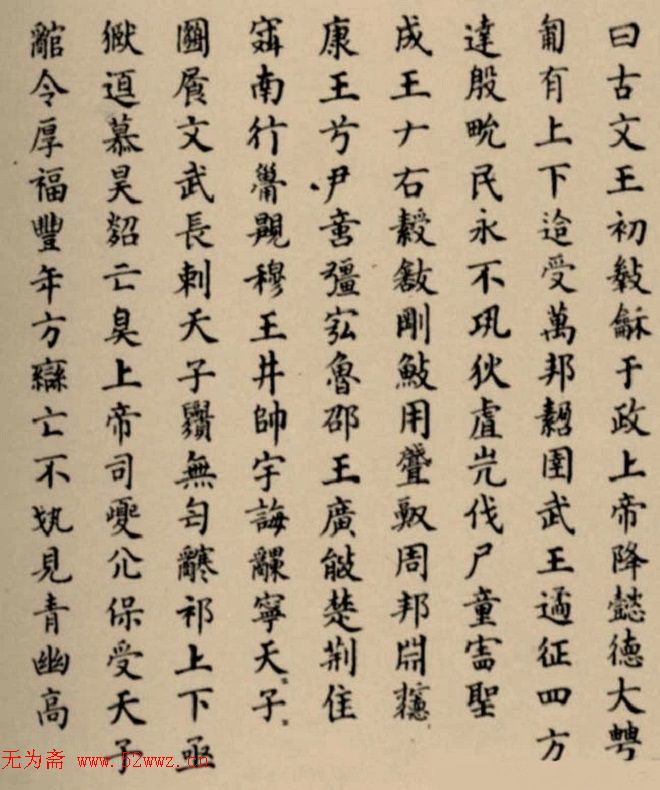 曰古文王初龢于政上帝降懿德大甹
匍有上下迨受萬邦圉武王遹征四方
達殷畯民永不巩狄虘伐尸童聖
成王ナ右剛用肇周邦
康王兮尹啻彊宖魯邵王廣楚荊隹
南行穆王井帥宇誨寧天子
圝文武長剌天子無匄祁上下亟
慕昊亡昊上帝司夒保受天子
令厚福豐年方蠻亡不見青幽高
无为斋 www.52wwz.cn